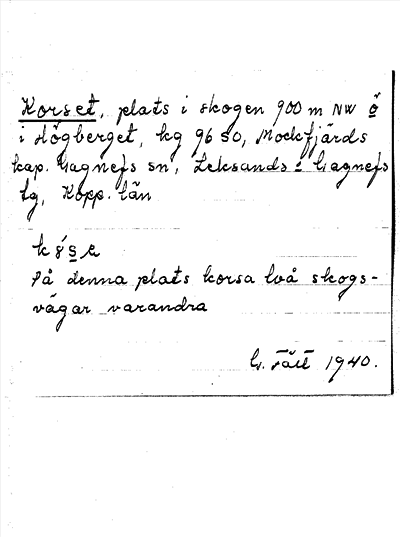 Korset, plats i skogen 900 m NW ö
i Högberget, kg 96 SO, Mockfjärds
kap. Gagnefs sn, Leksands o Gagnefs
tg, Kopp. län
På denna plats korsa två skogs-
vägar varandra
G. 1940.